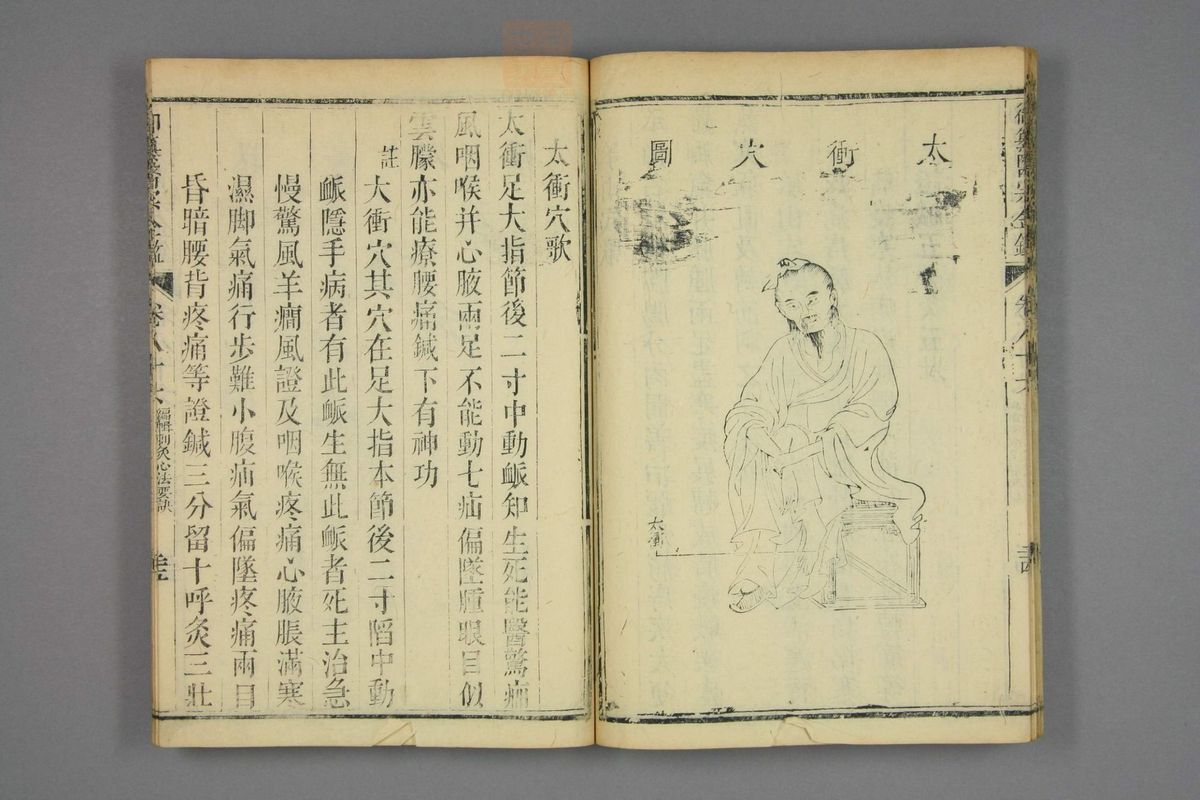 御纂醫宗金鑑
卷八十六
太衝穴圖
太衝
太衝穴歌
太衝足大指節後二寸中動䘑知生死能醫驚癇
風咽喉并心腋兩足不能動七疝偏墜腫眼目似
雲朦亦能療腰痛鍼下有神功
註
大衝穴其穴在足大指本節後二寸䧟中動
䘑隱手病者有此䘑生無此䘑者死主治急
慢驚風羊癎風證及咽喉疼痛心腋脹滿寒
濕脚氣痛行步難小腹疝氣偏墜疼痛兩目
昏暗腰背疼痛等證鍼三分留十呼灸三壯
御纂醫宗金鑑
卷八十六
編輯刺灸心法要訣